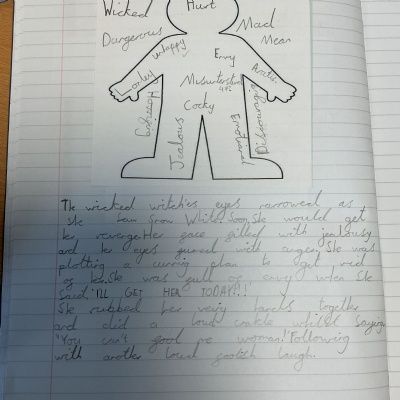 Wicked
Hurt
Mad
Dangerous
Mean
Unhappy
Envy
Lonely
Misunderstood
Cocky
Jealous
Emotional
Discouraging
The wicked witches eyes narrowed as
she saw Snow White. Soon she would get
her revenge. Her face filled with jealousy
and her eyes gured with anger. She was
plotting a cuning plan to get rid
of her. She was full of envy when She
Said, "I'LL GET HER TODAY!!!"
She rubbed her veiny hands together
and did a loud cackle whilst saying
"You can't fool me woman!" Following
with another loud laugh.